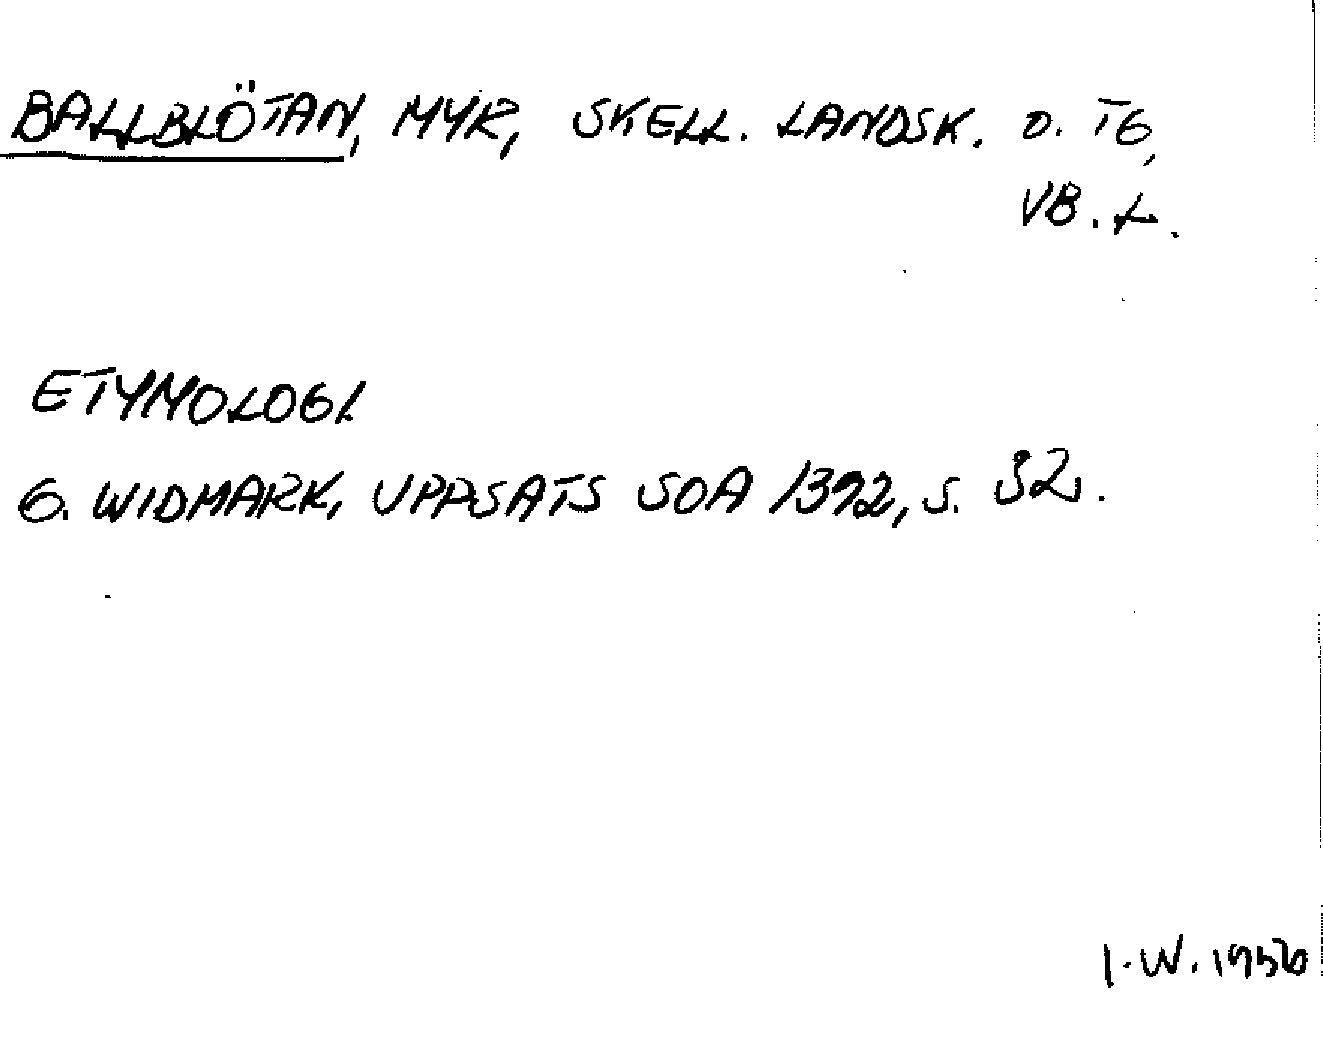 BALLBLÖTAN, MYR, SKELL. LANDSK. O. TG,
VB. L.
ETYMOLOGI.
G. WIDMARK, UPPSATS SOA 1392, S. 32.
I.W. 1956